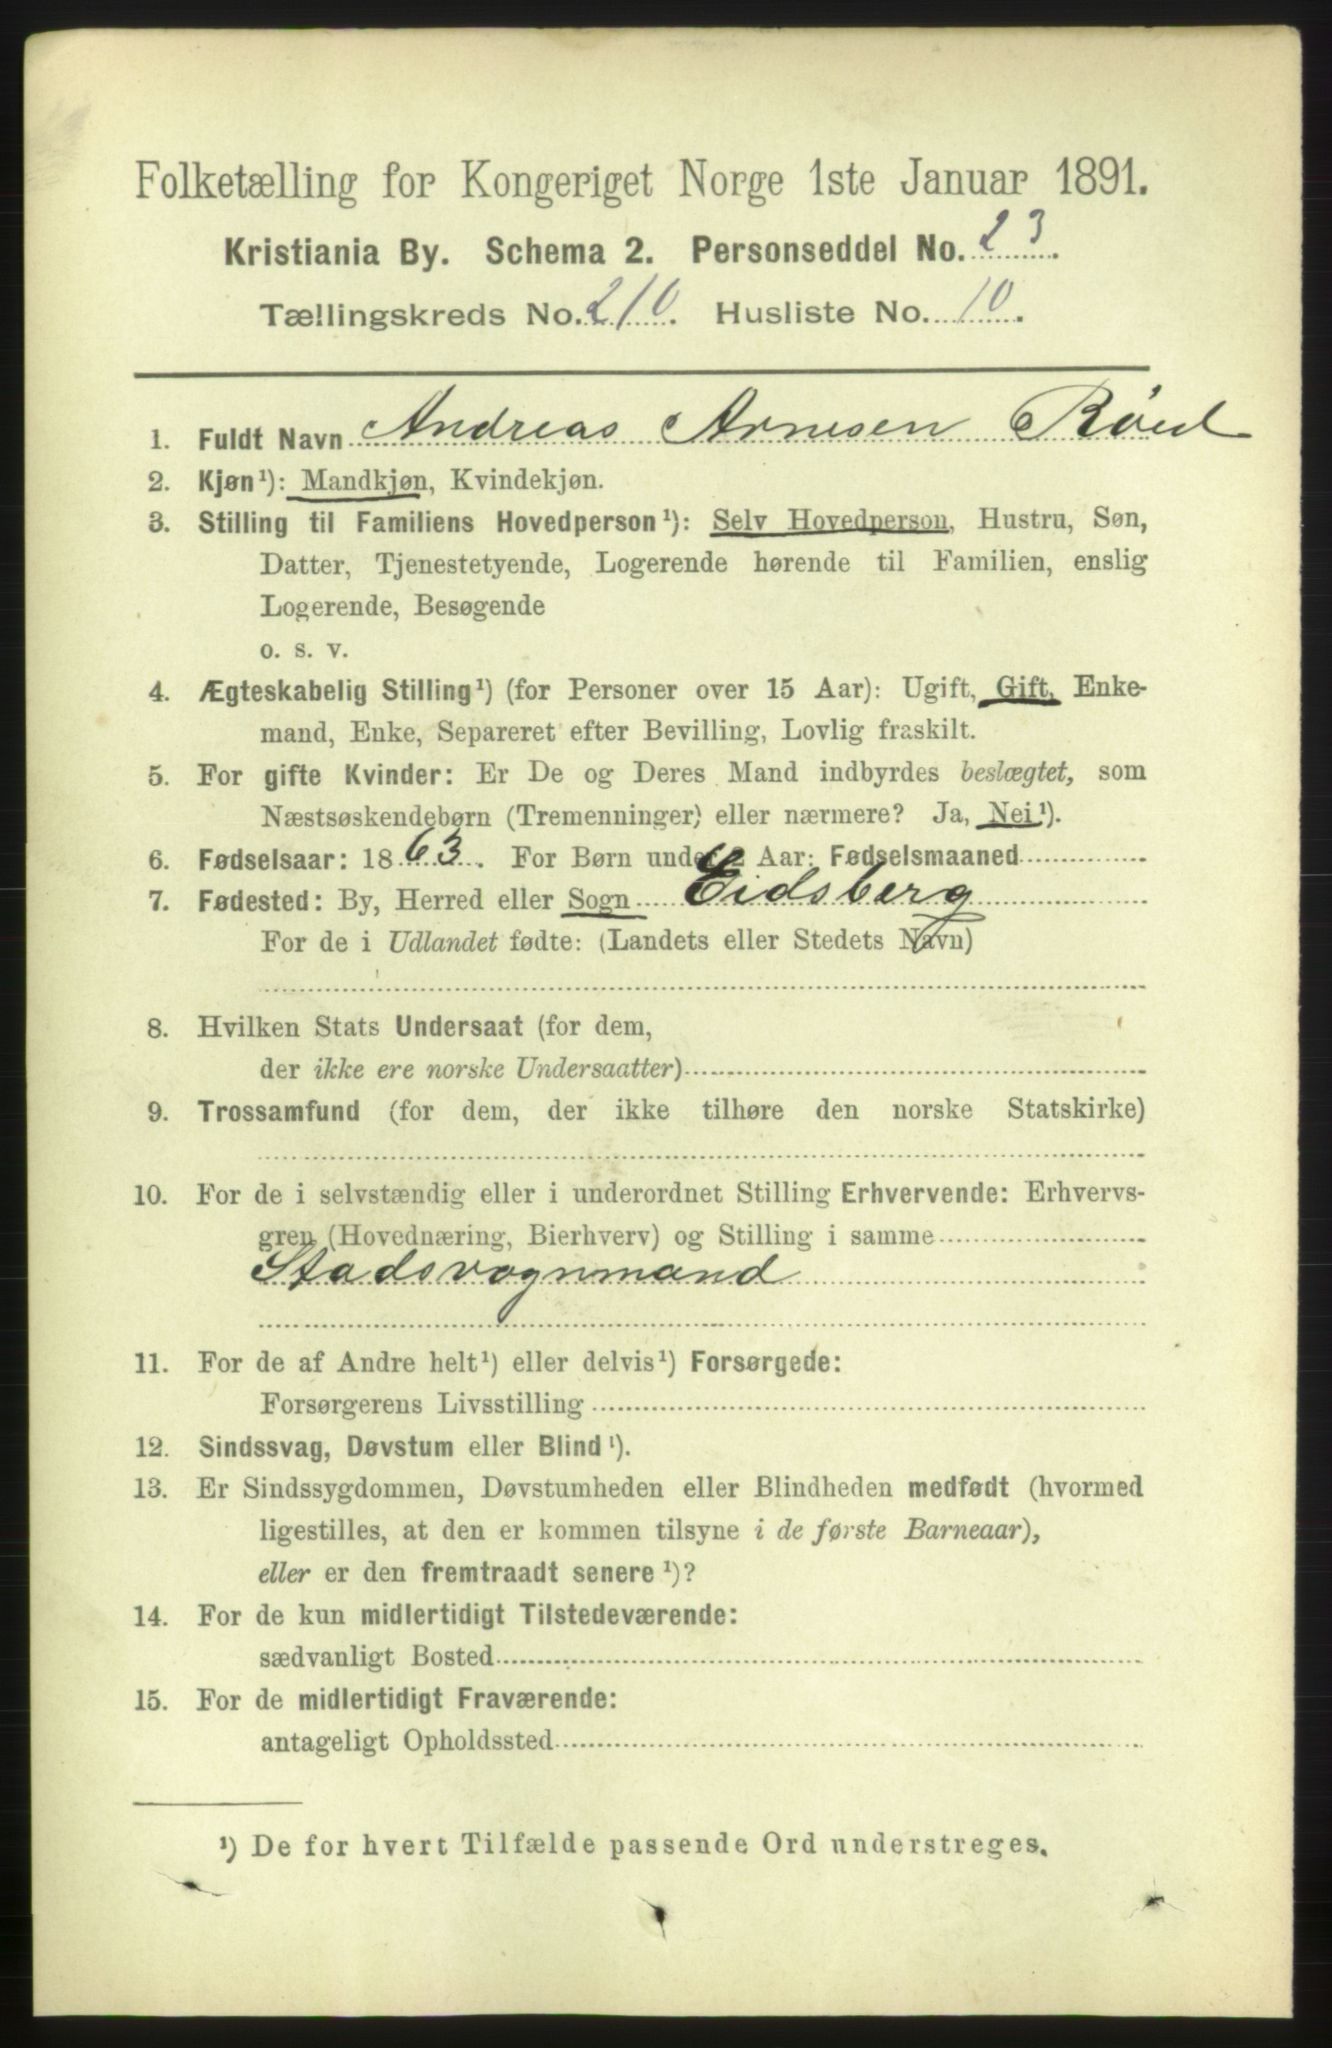 Folketælling for Kongeriget Norge 1ste Januar 1891.
Kristiania By. Schema 2. Personseddel No. 23.
Tællingskreds No. 210. Husliste No. 10.
1. Fuldt Navn Andreas Arnesen Röed
2. Kjøn¹): Mandkjøn, Kvindekjøn.
3. Stilling til Familiens Hovedperson¹): Selv Hovedperson, Hustru, Søn,
Datter, Tjenestetyende, Logerende hørende til Familien, enslig
Logerende, Besøgende
o. s. v.
4. Ægteskabelig Stilling¹) (for Personer over 15 Aar): Ugift, Gift, Enke-
mand, Enke, Separeret efter Bevilling, Lovlig fraskilt.
5. For gifte Kvinder: Er De og Deres Mand indbyrdes beslægtet, som
Næstsøskendebørn (Tremenninger) eller nærmere? Ja, Nei¹).
6. Fødselsaar: 1863. For Børn under 2 Aar: Fødselsmaaned
7. Fødested: By, Herred eller Sogn Eidsberg
For de i Udlandet fødte: (Landets eller Stedets Navn)
8. Hvilken Stats Undersaat (for dem,
der ikke ere norske Undersaatter)
9. Trossamfund (for dem, der ikke tilhøre den norske Statskirke)
10. For de i selvstændig eller i underordnet Stilling Erhvervende: Erhvervs-
gren (Hovednæring, Bierhverv) og Stilling i samme
Stadsvognmand
11. For de af Andre helt¹) eller delvis¹) Forsørgede:
Forsørgerens Livsstilling
12. Sindssvag, Døvstum eller Blind¹).
13. Er Sindssygdommen, Døvstumheden eller Blindheden medfødt (hvormed
ligestilles, at den er kommen tilsyne i de første Barneaar),
eller er den fremtraadt senere¹)?
14. For de kun midlertidigt Tilstedeværende:
sædvanligt Bosted
15. For de midlertidigt Fraværende:
antageligt Opholdssted
¹) De for hvert Tilfælde passende Ord understreges.